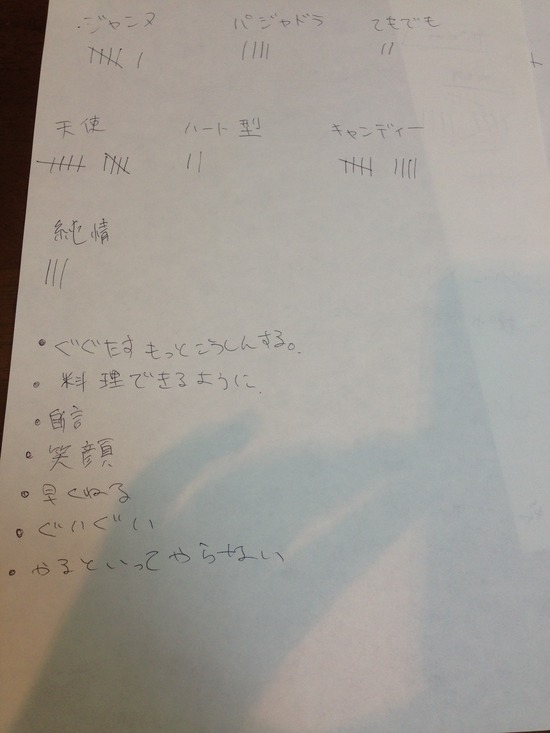 ・ジャンヌ パジャドラ てもでも
天使 ハート型 キャンディー
純情
・ぐぐたすもっとこうしんする。
・料理できるように.
・自言
・笑顔
・早くねる
・ぐいぐい
・やるといってやらない